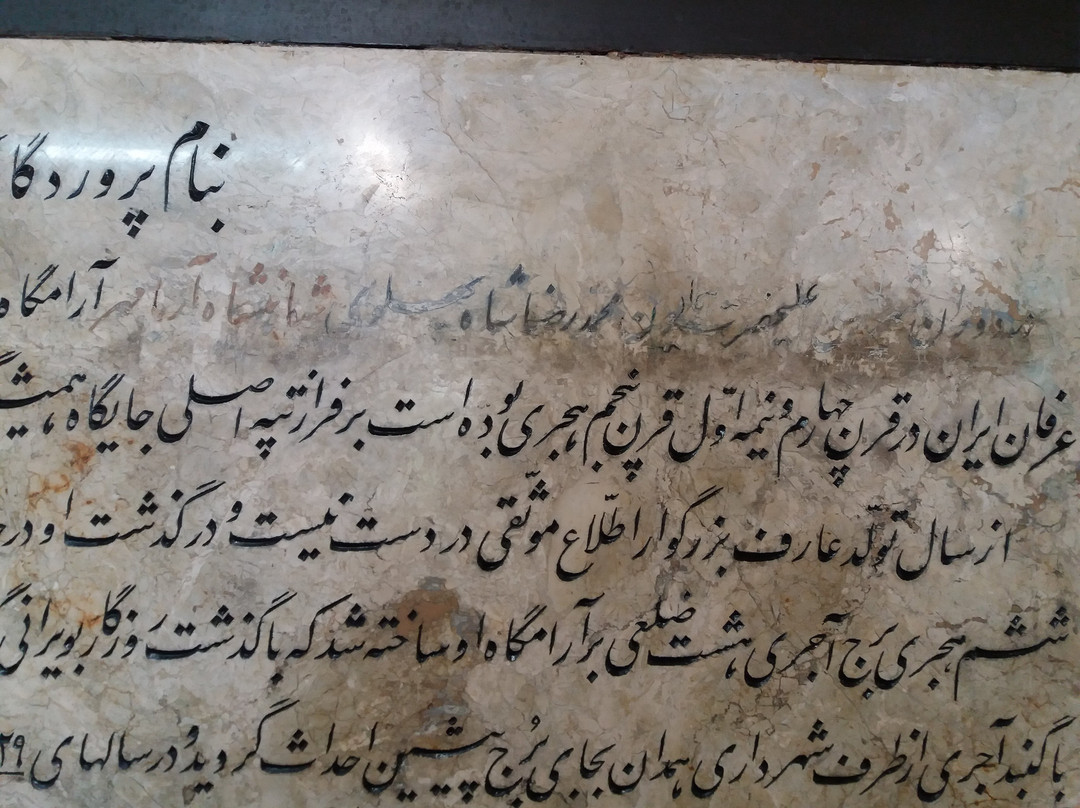 بنام پروردگا
در دوران اعلیحضرت همایون محمدرضا شاه پهلوی شاهنشاه آریامهر آرامگاه
عرفان ایران در قرن چهارم و نیمه اوّل قرن پنجم هجری بوده است برفراز تپه اصلی جایگاه همیشگ
از سال تولّد عارف بزرگوار اطّلاع موثّقی در دست نیست و درگذشت او در
ششم هجری بُرج آجری هشت ضلعی برآرامگاه او ساخته شد که با گذشت روزگار بویرانی
با گنبد آجری از طرف شهرداری همدان بجای بُرج پیشین احداث گردید و در سالهای ۲۹